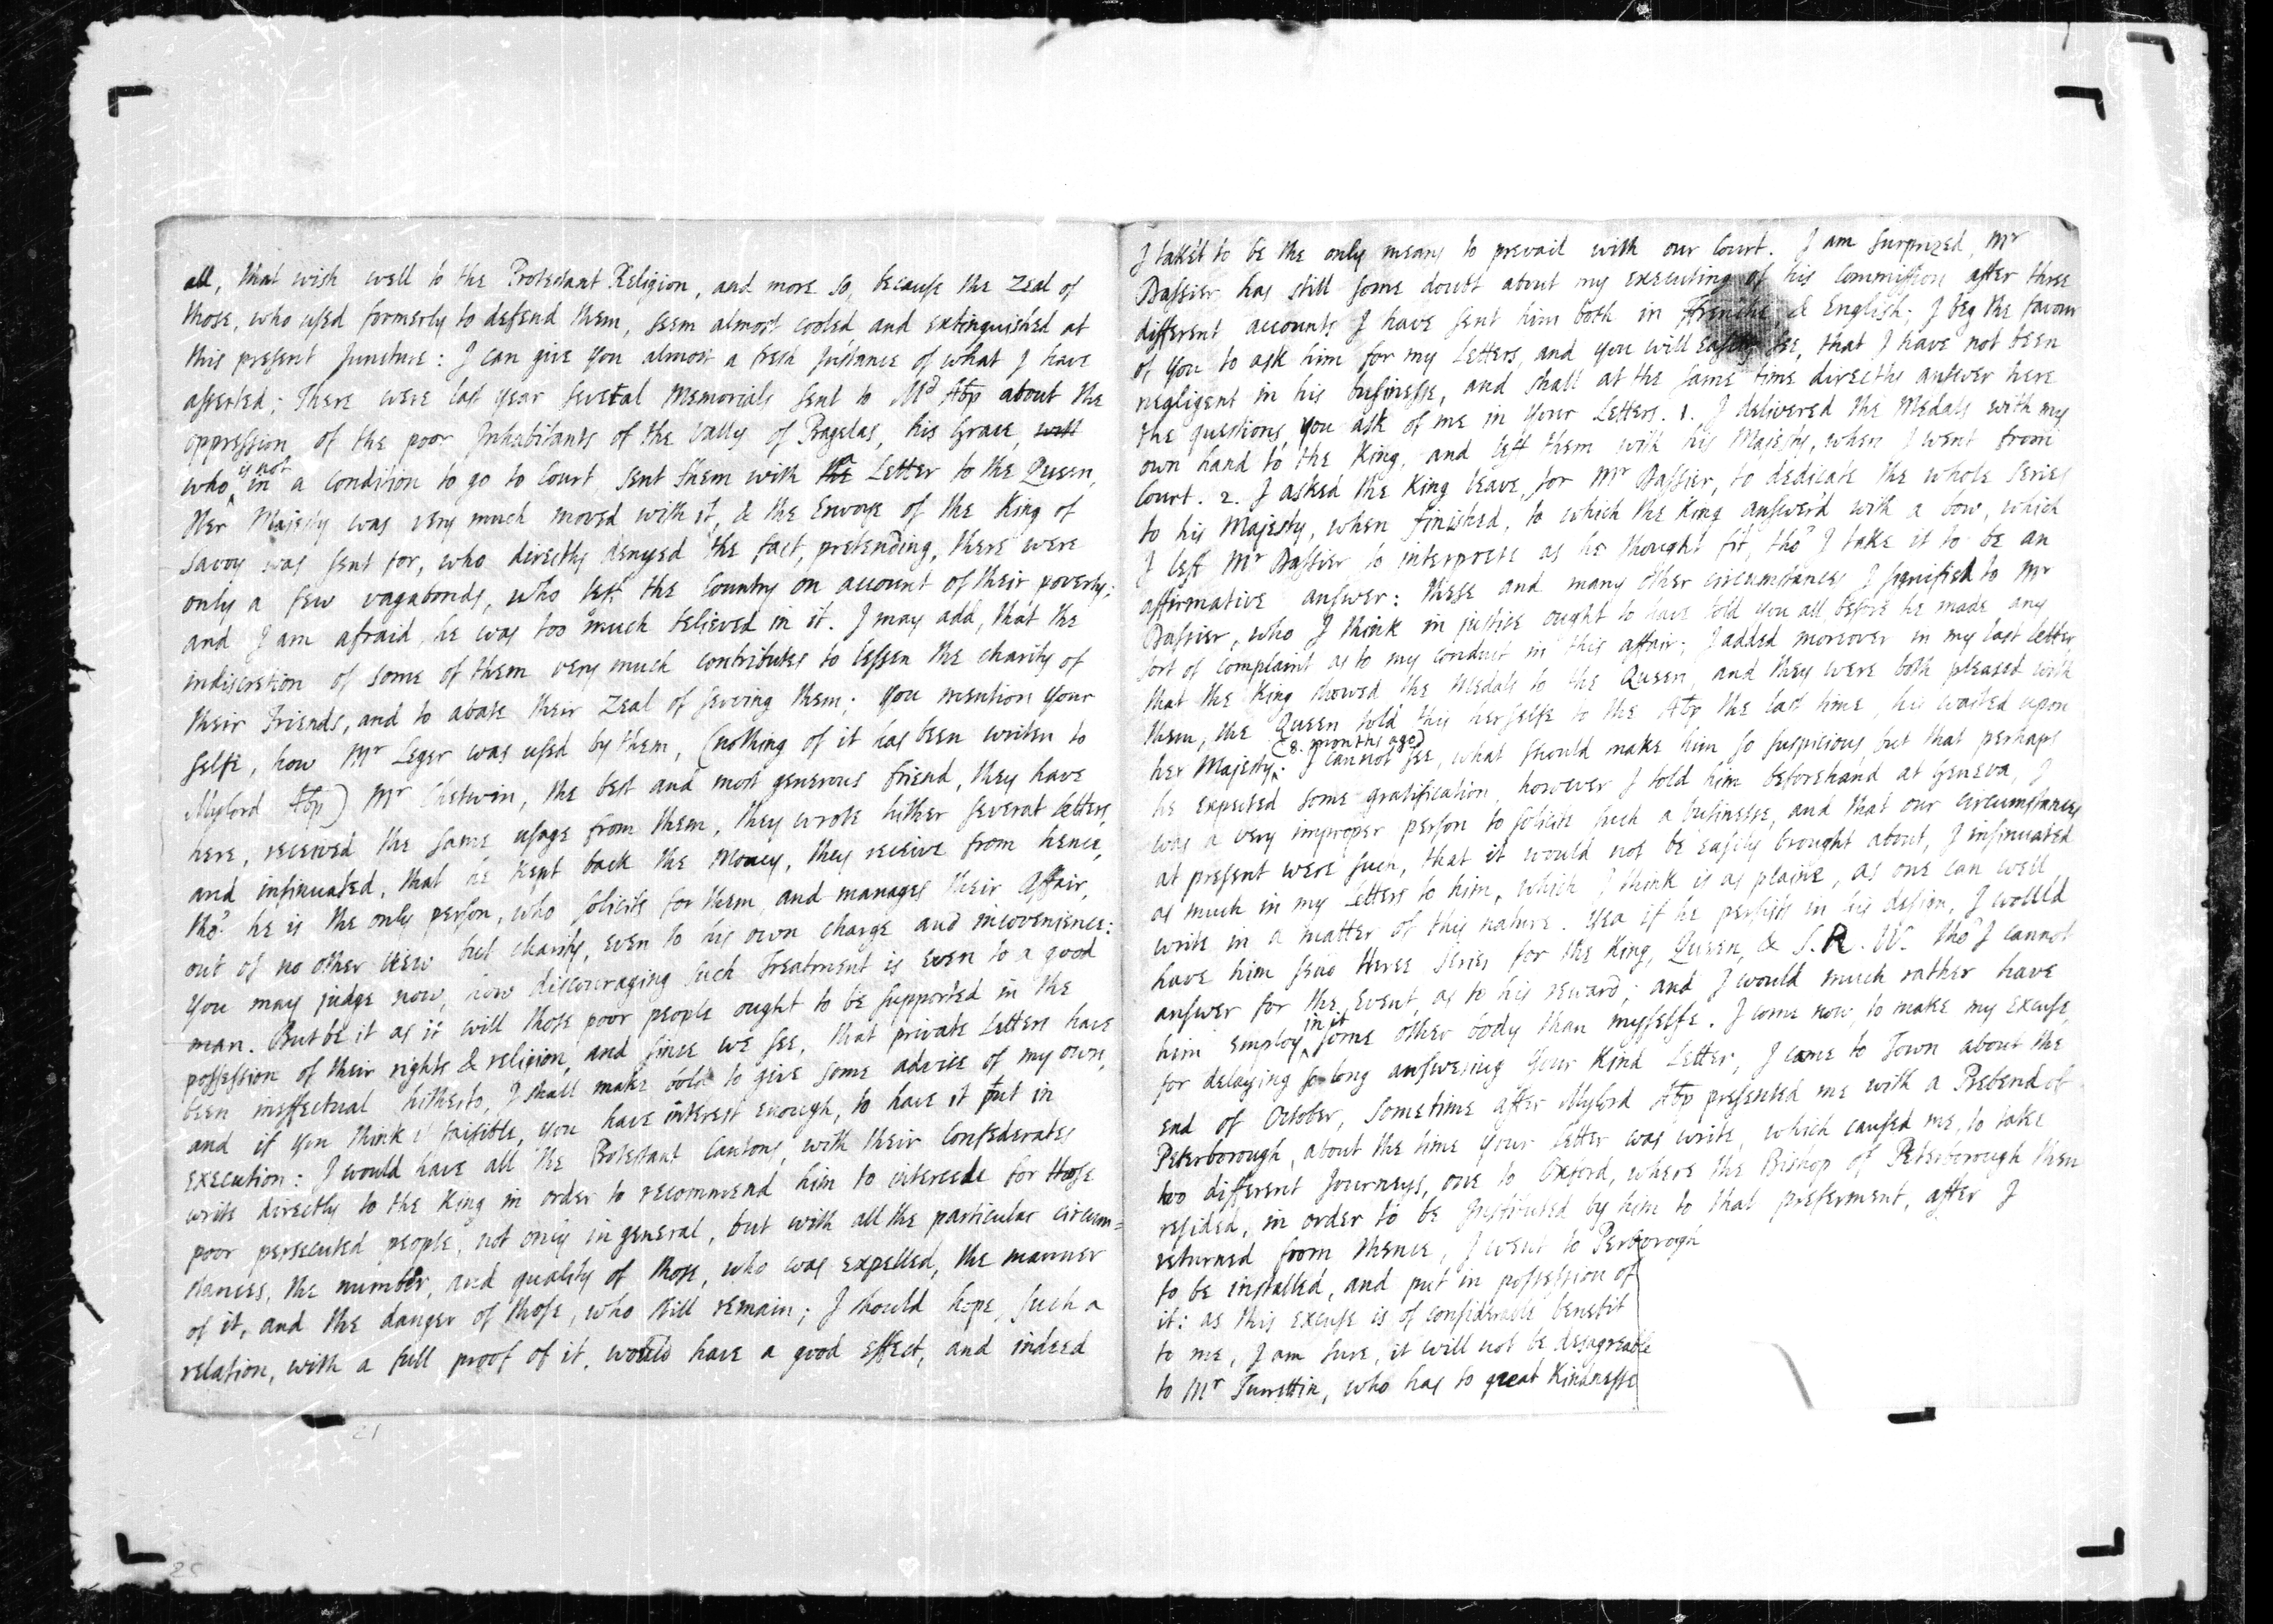 all, that wish well to the Protestant Religion, and more so, because the zeal of
those, who used formerly to defend them, seem almost cooled and extinguished at
this present Juncture: I can give you almost a fresh Instance of what I have
asserted; There were last year several Memorials sent to Mld Abp about the
oppression of the poor Inhabitants of the Vally of Pragelas, his Grace, will
who is not in a condition to go to Court sent them with the Letter to the Queen,
Her Majesty was very much moved with it, & the Envoye of the King of
Savoy was sent for, who directly denyed the fact, pretending, there were
only a few vagabonds, who left the Country on account of their poverty;
and I am afraid, he was too much believed in it. I may add, that the
indiscretion of some of them very much contributes to lessen the charity of
their Friends, and to abate their zeal of serving them; you mention your
selfe, how Mr Leger was used by them, (nothing of it has been writen to
Mylord Abp) Mr Chetwin, the best and most generous friend, they have
here, received the same usage from them, they wrote hither several letters,
and insinuated, that he kept back the Money, they receive from hence,
tho' he is the only person, who solicits for them, and manages their Affair,
out of no other view but charity, even to his own charge and incovenience:
you may judge now, how discouraging such Treatment is even to a good
man. But be it as it will those poor people ought to be supported in the
possession of their rights & religion, and since we see, that private letters have
been ineffectual hitherto, I shall make bold to give some advice of my own,
and if you think it faisible, you have interest enough, to have it put in
execution: I would have all the Protestant Cantons, with their Confederates
write directly to the King in order to recommend him to intercede for those
poor persecuted people, not only in general, but with all the particular circum=
stances, the number, and quality of those, who was expelled, the manner
of it, and the danger of those, who still remain; I should hope, such a
relation, with a full proof of it, would have a good effect, and indeed
I take't to be the only means to prevail with our Court. I am surprized, Mr
Dassier has still some doubt about my executing of his Commission after three
different accounts I have sent him both in Frenche & English: I beg the favour
of you to ask him for my Letters, and you will easily see, that I have not been
negligent in his businesse, and shall at the same time directly answer here
the questions, you ask of me in your Letters. 1. I delivered the Medals with my
own hand to the King, and left them with his Majesty, when I went from
Court. 2. I asked the King leave, for Mr Dassier, to dedicate the whole series
to his Majesty, when finished, to which the King answer'd with a bow, which
I left Mr Dassier to interprete as he thought fit, tho' I take it to be an
affirmative answer: these and many other circumstances I signified to Mr
Dassier, who I think in justice ought to have told you all, before he made any
sort of complaint as to my conduct in this affair; I added moreover in my last letter
that the King showed the Medals to the Queen, and they were both pleased with
them, the Queen told this herselfe to the Abp the last time, he waited upon
her Majesty (8. months ago): I cannot see, what should make him so suspicious, but that perhaps
he expected some gratification, however I told him beforehand at Geneva, I
was a very improper person to solicite such a businesse, and that our circumstances
at present were such, that it would not be easily brought about, I insinuated
as much in my Letters to him, which I think is as plaine, as one can well
write in a matter of this nature. Yea if he persists in his design, I would
have him send three series for the King, Queen, & S. R. W. tho' I cannot
answer for the Event, as to his reward; and I would much rather have
him employ in it some other body than myselfe. I come now, to make my excuse,
for delaying so long answering your kind Letter; I came to Town about the
end of October, sometime after Mylord Abp presented me with a Prebend of
Peterborough, about the time your letter was write, which caused me, to take
two different Journeys, one to Oxford, where the Bishop of Peterborough then
resided, in order to be Instituted by him to that preferment, after I
returned from thence, I went to Perborogh
to be installed, and put in possession of
it: as this excuse is of considerable benefit
to me, I am sure, it will not be disagreable
to Mr Turrettin, who has so great kindnesse